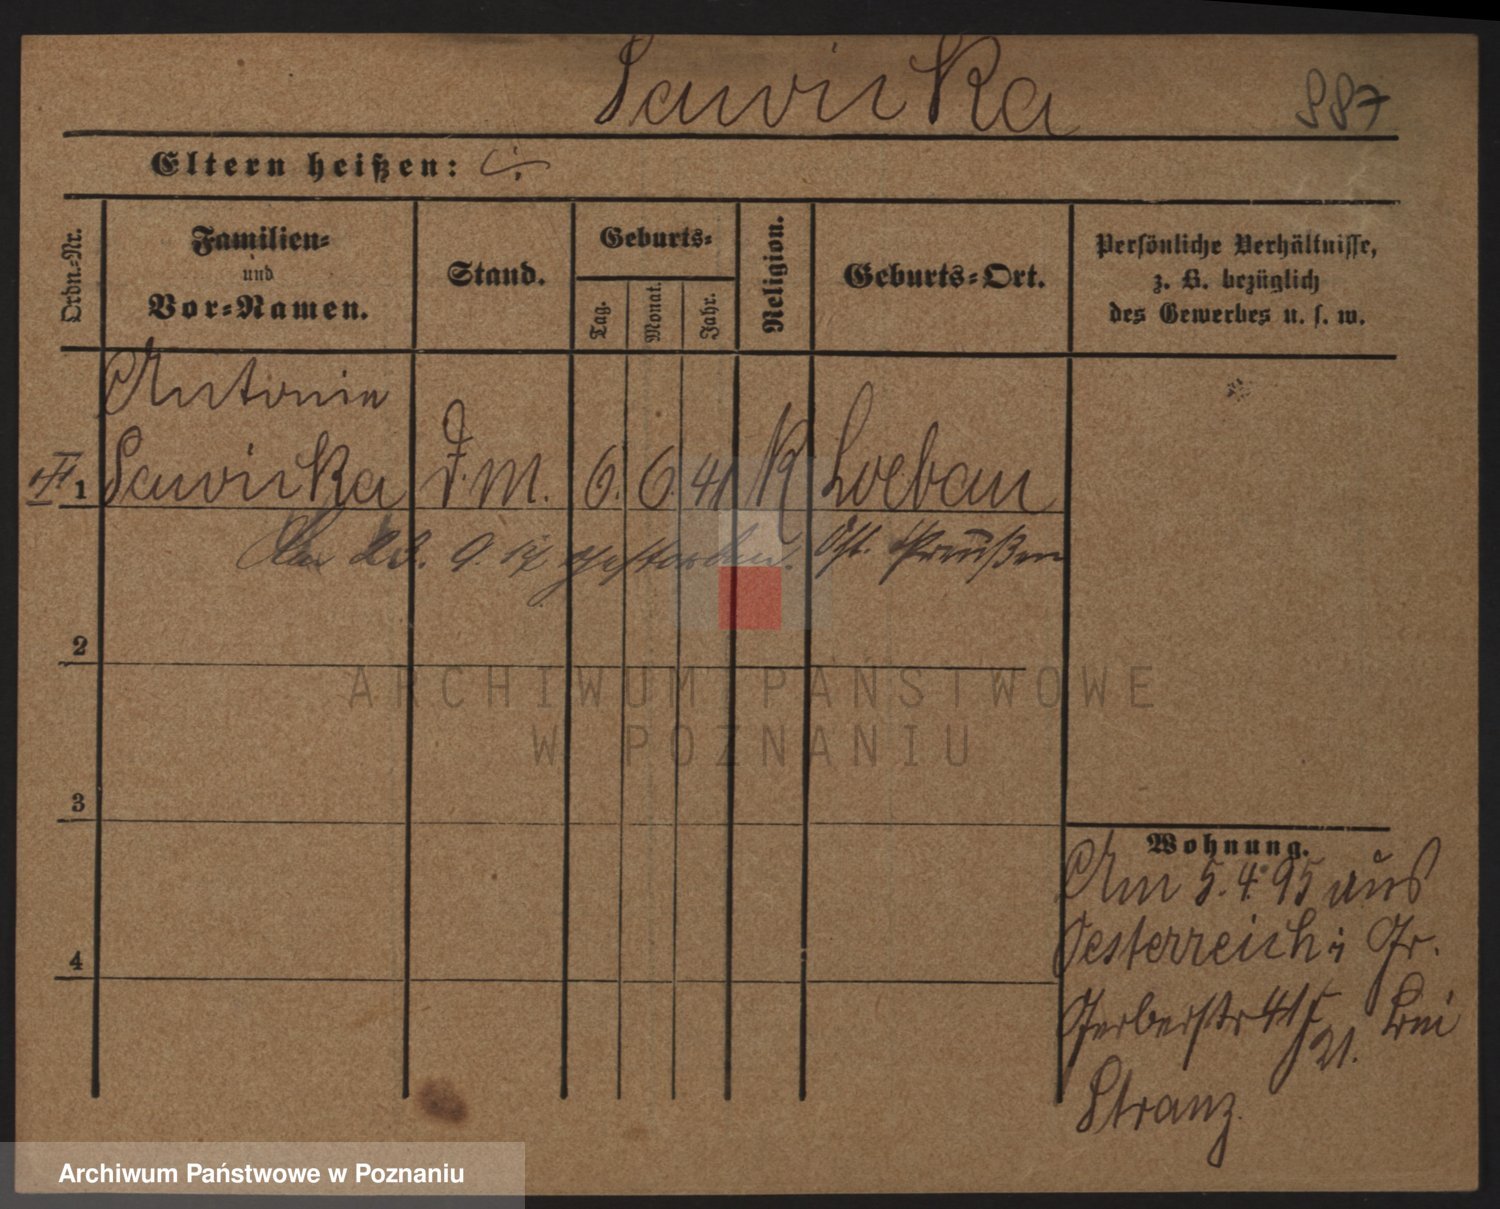 Sawicka
887
Eltern heißen:
Ordn.-Nr.
Familien-
und
Vor-Namen.
Stand.
Geburts-
Tag.
Monat.
Jahr.
Religion.
Geburts-Ort.
Persönliche Verhältnisse,
z. B. bezüglich
des Gewerbes u. s. w.
Antonie
1 Sawicka D. M. 6. 6. 41 K Loebau
gestorben. Ost. Preußen
2
3
4
Wohnung.
Am 5. 4. 95 aus
Oesterreich Gr.
Gerberstr 41 bei
21.
Stranz.
ARCHIWUM PAŃSTWOWE
W POZNANIU
Archiwum Państwowe w Poznaniu